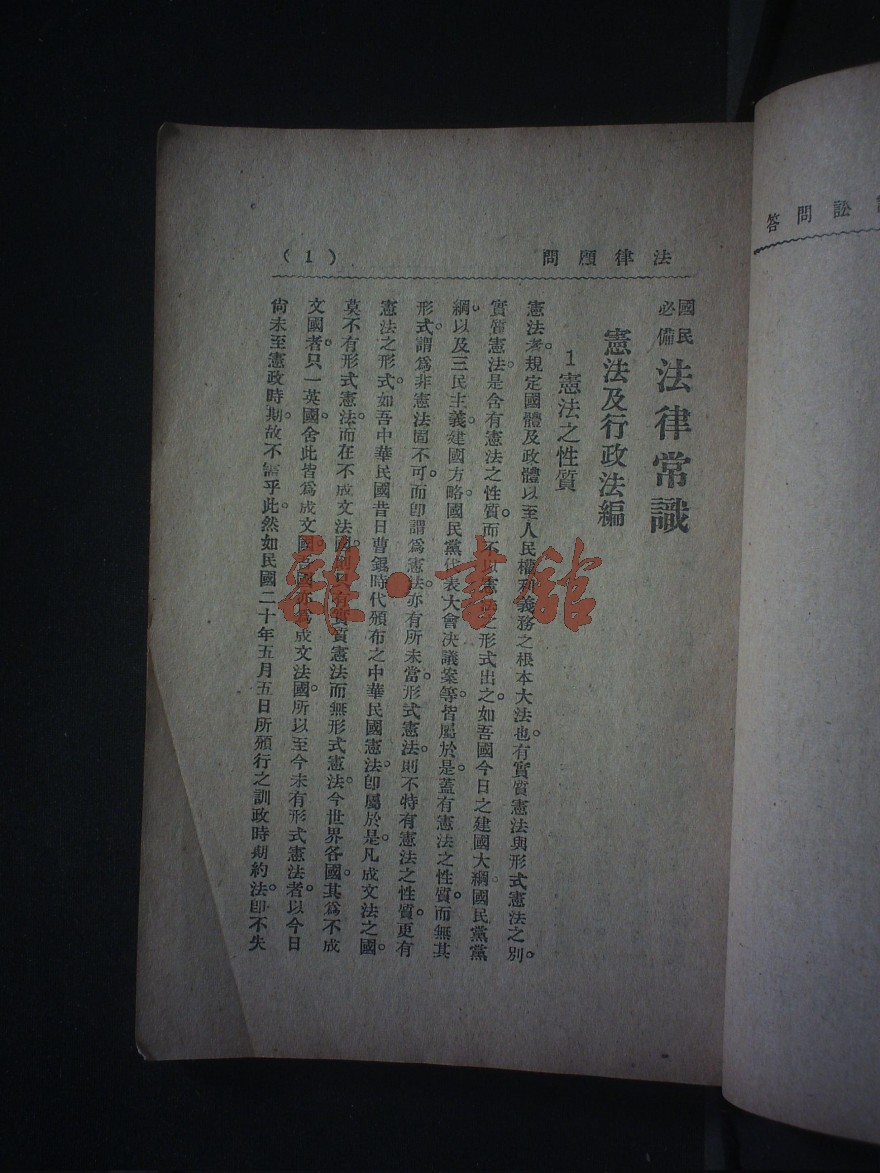 法律顧問
(1)
國民必備
法律常識
憲法及行政法編
1憲法之性質
憲法者規定國體及政體以至人民權利義務之根本大法也。有實質憲法與形式憲法之別。
實質憲法。是含有憲法之性質。而不以憲法之形式出之。如吾國今日之建國大綱國民黨黨
綱以及三民主義建國方略。國民黨代表大會決議案等。皆屬於是。蓋有憲法之性質。而無其
形式。謂爲非憲法固不可。而卽謂爲憲法。亦有所未當。形式憲法。則不特有憲法之性質。更有
憲法之形式。如吾中華民國昔日曹錕時代頒布之中華民國憲法。卽屬於是。凡成文法之國。
莫不有形式憲法。而在不成文法國。則只有實質憲法而無形式憲法。今世界各國。其爲不成
文國者。只一英國。舍此皆爲成文國。吾國亦爲成文法國。所以至今未有形式憲法者。以今日
尙未至憲政時期。故不需乎此。然如民國二十年五月五日所頒行之訓政時期約法。卽不失
訟問答
羣書舘